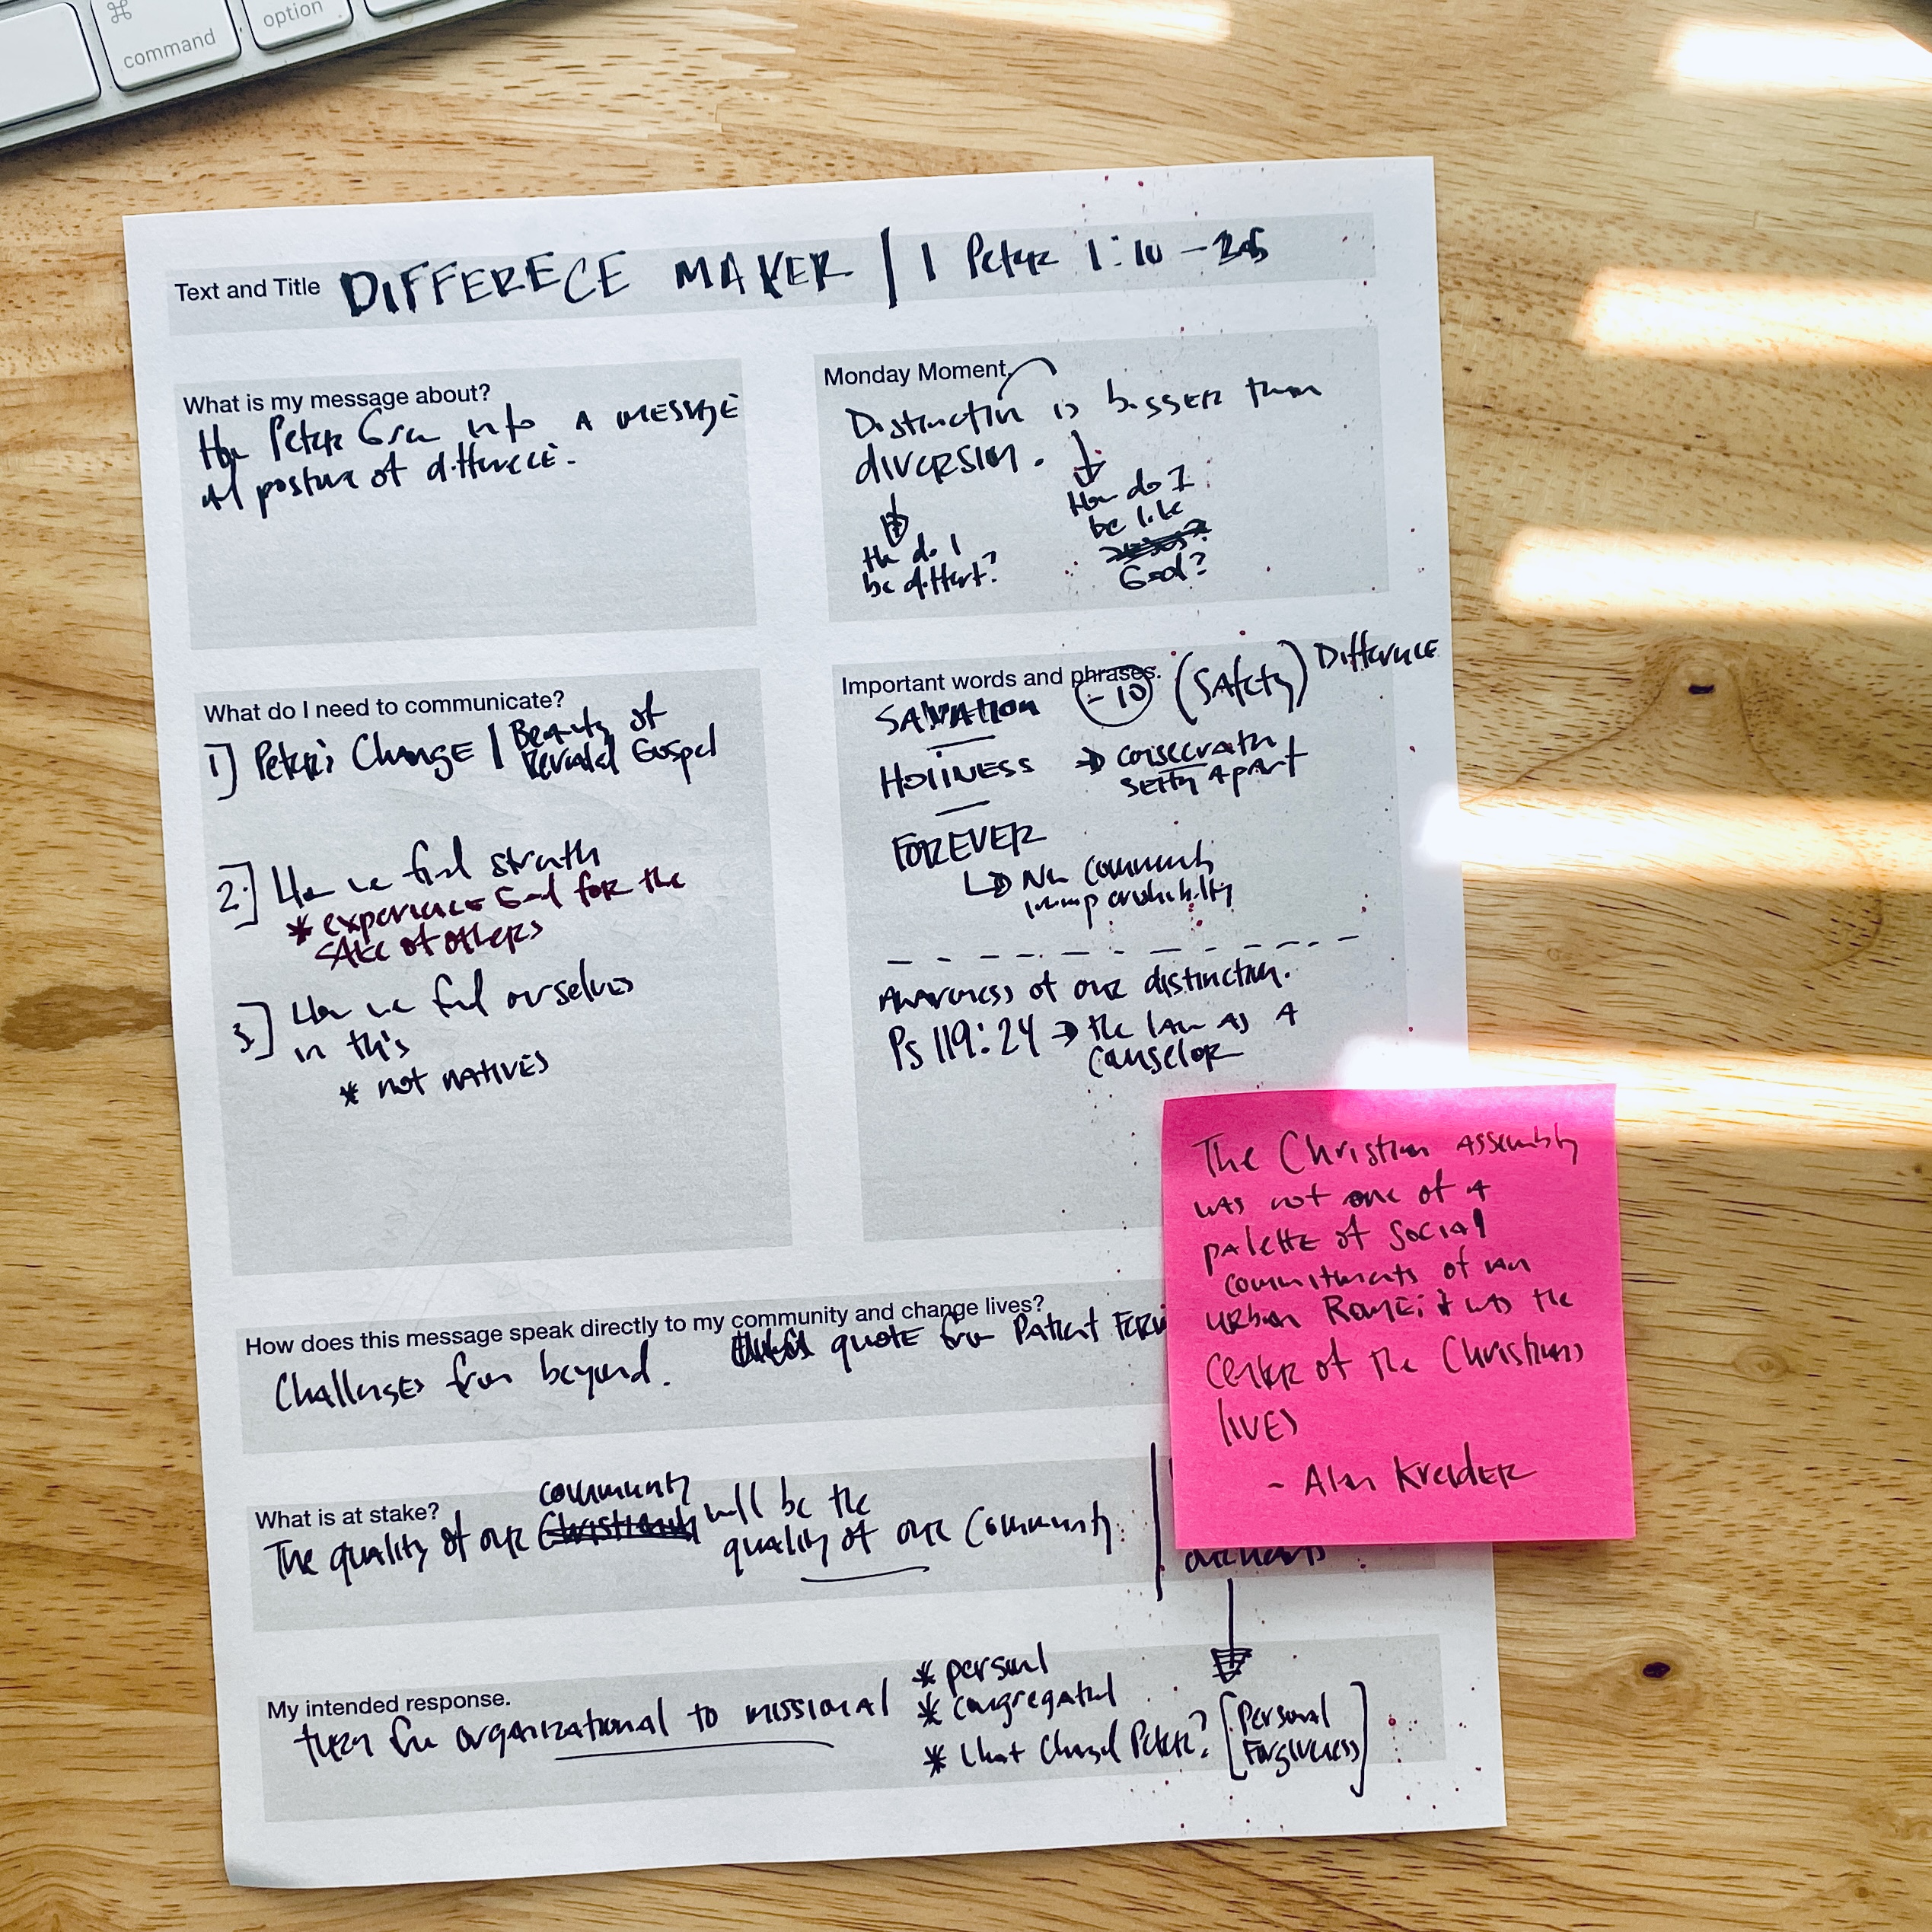 ⌘
command
option
Text and Title DIFFERECE MAKER | 1 Peter 1:10 -
What is my message about?
How Peter Grew into A MESSAGE
posture of difference.
Monday Moment.
Distinction is bigger than
diversion.
How do I
be like
God?
How do I
be different?
What do I need to communicate?
1] Peter's Change | Beauty of
Revealed Gospel
2.] How we find strength
* experience God for the
SAKE of others
3.] How we find ourselves
in this
* not NATIVES
Important words and phrases.
SALVATION - 10 (SAfety) Difference
HOliNESS → consecration
setting Apart
FOREVER
↳ New community
Awareness of our distinction.
Ps 119:24 → the law as A
counselor
The Christian Assembly
was not one of A
palette of social
commitments of an
urban Rome; it was the
center of the Christians
lives
- Alan Kreider
How does this message speak directly to my community and change lives?
Challenges from beyond. quote from Patient
What is at stake?
community
The quality of our will be the
quality of our community.
My intended response.
turn from organizational to missional
* personal
* congregational
* what changed Peter? [Personal
Forgiveness]